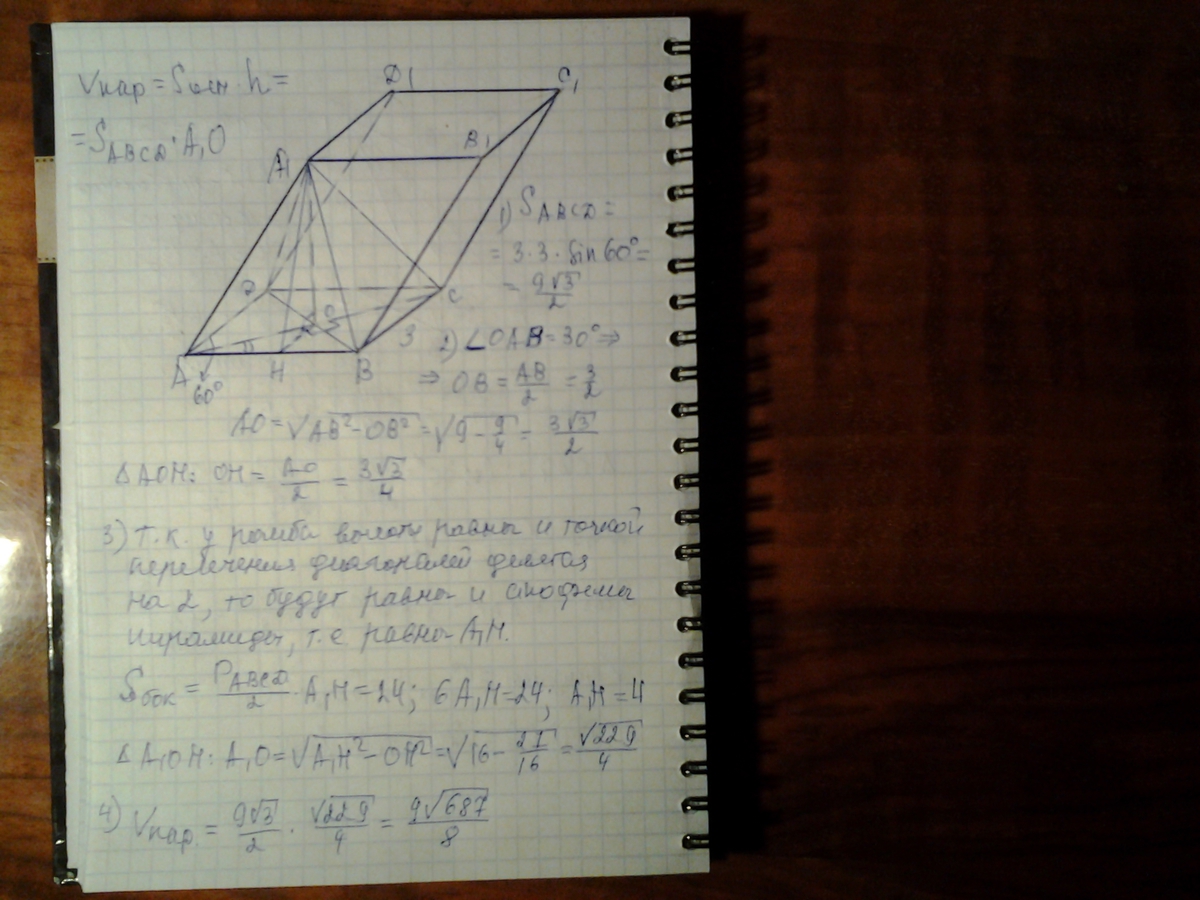 Vпар = Sосн · h =
= S ABCD · A₁O
D₁
C₁
A₁
B₁
1) S ABCD =
= 3·3·sin60° =
= 9√3/2
D
C
O
3
A
H
B
60°
2) ∠OAB = 30° ⇒
⇒ OB = AB/2 = 3/2
AO = √(AB² - OB²) = √(9 - 9/4) = 3√3/2
ΔAOH: OH = AO/2 = 3√3/4
3) Т.к. у ромба высоты равны и точкой
пересечения диагоналей делятся
на 2, то будут равны и апофемы
пирамиды, т.е. равны A₁H.
Sбок = P ABCD/2 · A₁H = 24; 6A₁H = 24; A₁H = 4
ΔA₁OH: A₁O = √(A₁H² - OH²) = √(16 - 27/16) = √229/4
4) Vпар. = 9√3/2 · √229/4 = 9√687/8